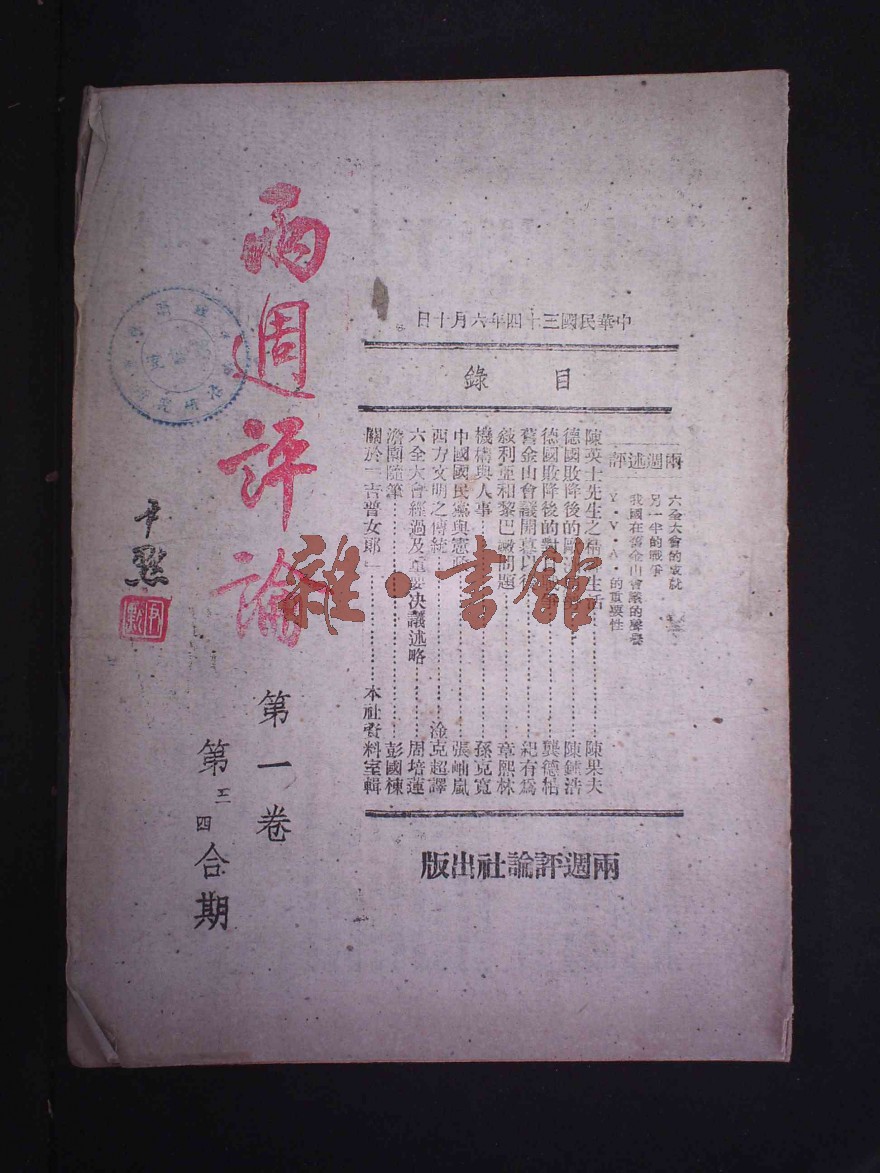 兩週評論
第一卷
第三四合期
尹默
中華民國三十四年六月十日
目錄
兩週述評
六全大會的成就
另一半的戰爭
我國在舊金山會議的聲譽
Y·V·A·的重要性
陳英士先生之 生活 陳果夫
德國敗降後的歐 陳鍾浩
德國敗降後的對日 龔德柏
舊金山會議開幕以後 紀有為
敍利亞和黎巴嫩問題 章熙林
機構與人事 孫克寬
中國國民黨與憲政 張岫嵐
西方文明之傳統 淦克超譯
六全大會經過及重要決議述略 周培蓮
澹園隨筆 彭國棟
關於「吉普女郎」 本社資料室輯
兩週評論社出版
雜·書館